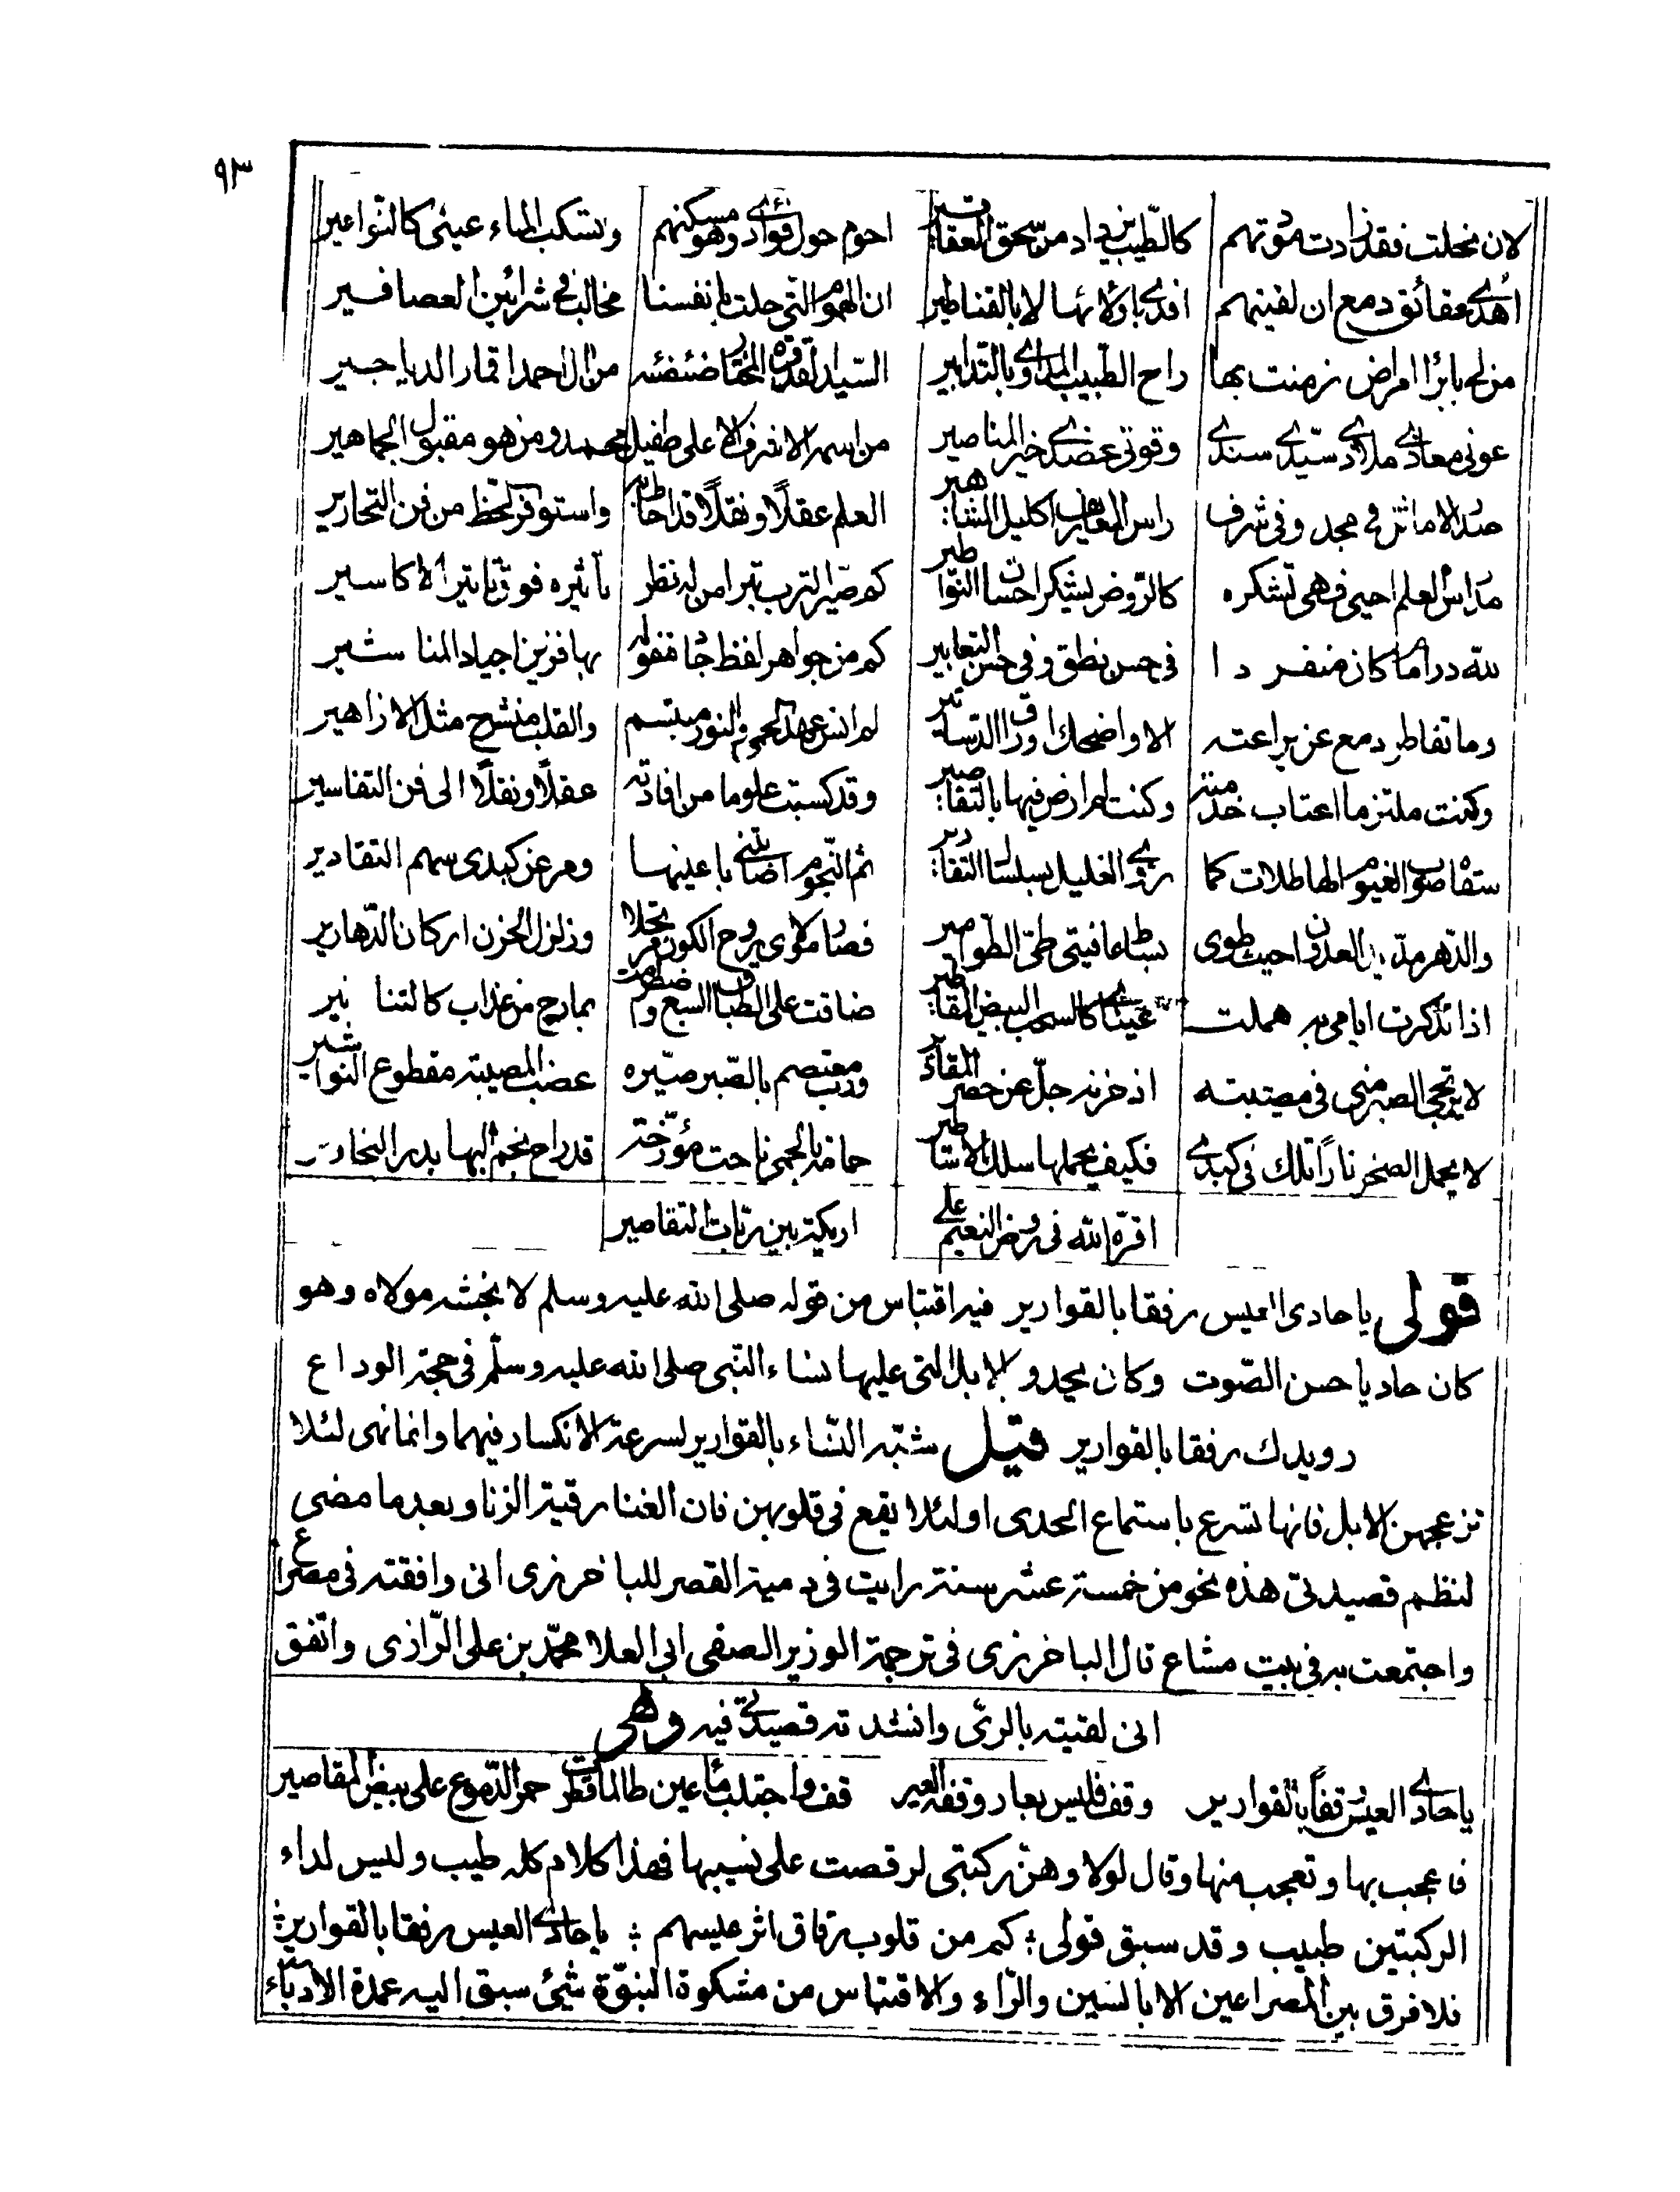 ٩٣
لان نحلت فقد زادت مودتهم كالطيب يزداد من سحق العقاقير احوم حول فؤادي وهو مسكنهم وتسكب الماء عيني كالنواعير
اهدي عقائق دمع ان لقيتهم افدي باولائها لا بالقناطير ان الهموم التي حلت بانفسنا مخالب في شرايين العصافير
من لي بابرا امراض زمنت بها راح الطبيب المداوي بالتدابير السيد القدوة المختار من ال احمد اقمار الدياجير
عوني معاذي ملاذي سيدي سندي وقوتي عضدي خير المناصير من اسمه الاشرف الاعلى طفيل محمد ومن هو مقبول الجماهير
صدر الاماثل في مجد وفي شرف راس المعاريف اكليل المشاهير العلم عقلًا ونقلًا قد احاط به واستوفر الحظ من فن التحارير
مدارس العلم احيى فهي تشكره كالروض يشكر احسان النواطير كم صير الترب تبرا من له نظر تاثيره فوق تاثير الاكاسير
لله در امام كان منفردا في حسن نطق وفي حسن التعابير كم من جواهر لفظ جاد مقوله بها فزين اجياد المناشير
وما تقاطر دمع عن يراعته الا واضحك اوراق الدساتير لم انس عهد الحمى والنور مبتسم والقلب منشرح مثل الازاهير
وكنت ملتزما اعتاب خدمته وكنت لم ارض فيها بالتقاصير وقد كسبت علوما من افادته عقلًا ونقلًا الى فن التفاسير
سقاه صوب الغيوم الهاطلات كما روي الغليل بسلسال التقارير ثم النجوم اصابتني باعينها ومر عن كبدي سهم التقادير
والدهر مد يد العدوان حيث طوى بساط عافيتي طي الطوامير فصار مولاي روح الكون مرتحلا وزلزل الحزن اركان الدهارير
اذا تذكرت ايامي به هملت عيناي كالسحب البيض المقاطير ضاقت على الطباق السبع واضطرمت بمارج من عذاب كالتنانير
لا يرتجى الصبر مني في مصيبته اذ حزنه جل عن حصر المقادير ورب معتصم بالصبر صيره عضب المصيبة مقطوع النواشير
لا يحمل الصخر نارًا تلك في كبدي فكيف يحملها سلك الاساطير حمامة بالحمى ناحت مؤرخة قد راح نجم البها بدر النحارير
اقره الله في روض النعيم على اريكة بين ربات التقاصير
قولي يا حادى العيس رفقا بالقوارير فيه اقتباس من قوله صلى الله عليه وسلم لانجشه مولاه وهو
كان حاديا حسن الصوت وكان يحدو الابل التي عليها نساء النبي صلى الله عليه وسلم في حجة الوداع
رويدك رفقا بالقوارير قيل شبه النساء بالقوارير لسرعة الانكسار فيهما وانما نهى لئلا
تزعجهن الابل فانها تسرع باستماع الحدى او لئلا يقع في قلوبهن فان الغنا رقية الزنا وبعد ما مضى
لنظم قصيدتي هذه نحو من خمسة عشر سنة رايت في دمية القصر للباخرزى انى وافقته في مصراع
واجتمعت به في بيت مشاع قال الباخرزى في ترجمة الوزير الصفى ابى العلا محمد بن على الرازى واتفق
انى لقيته بالرى وانشدته قصيدتي فيه وهى
يا حادي العيس رفقاً بالقوارير وقف فليس بعار وقفة العير قف واحتلب ماء عين طالما قطرت حمر الدموع على بيض المقاصير
فاعجب بها وتعجب منها وقال لولا وهن ركبتى لرقصت على نسيبها فهذا كلام كله طيب وليس لداء
الركبتين طبيب وقد سبق قولى ؛ كم من قلوب رقاق اثر عيسهم ؛ يا حادي العيس رفقا بالقوارير ؛
فلا فرق بين المصراعين الا بالسين والراء والاقتباس من مشكوة النبوة شيئ سبق اليه عمدة الادباء